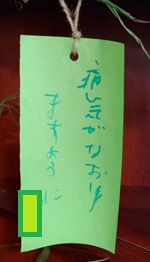 病気がなおり
ますように